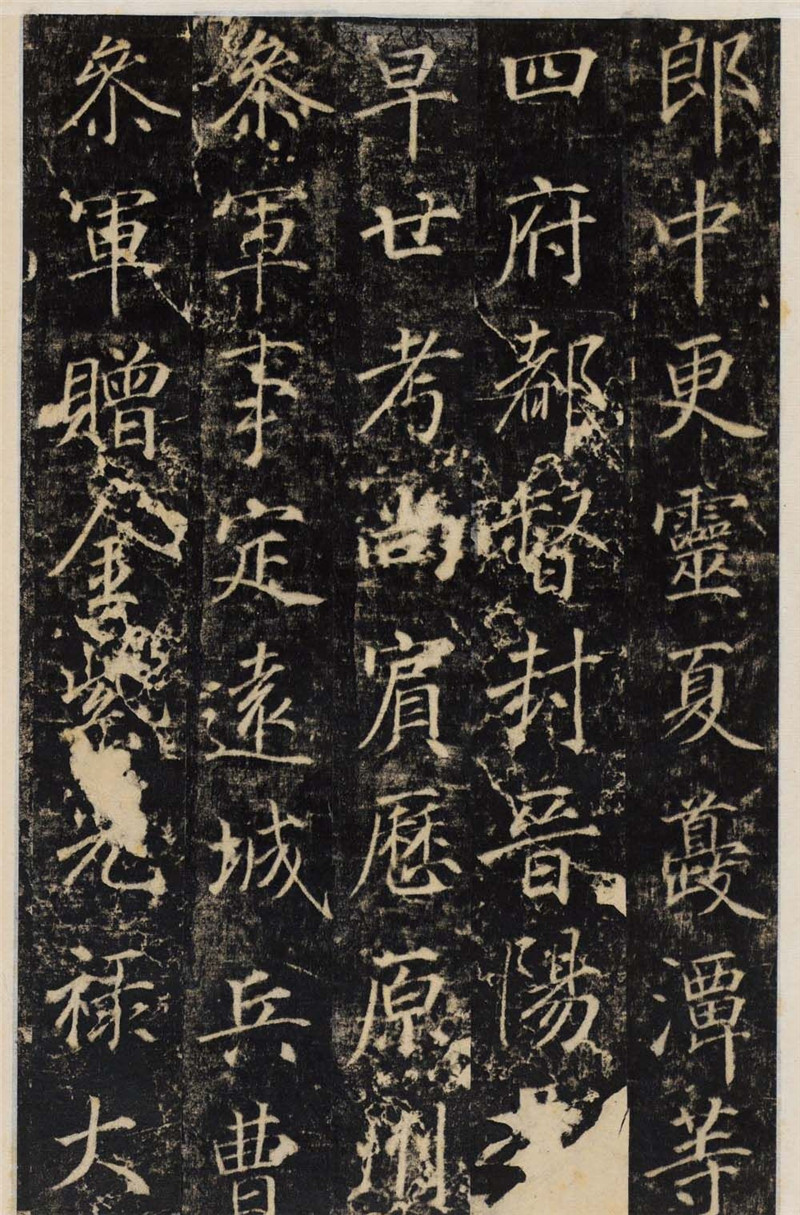 郎中更靈夏夔潭等
四府都督封晉陽
早世考尚賓歷原州
叅軍事定遠城兵曹
叅軍贈金紫光禄大